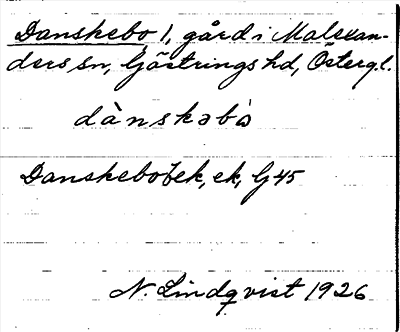 Danskebo 1, gård i Malexan-
ders sn, Göstrings hd, Östergl.
dànskəbò
Danskeboëk, ek, G 45
N. Lindqvist 1926